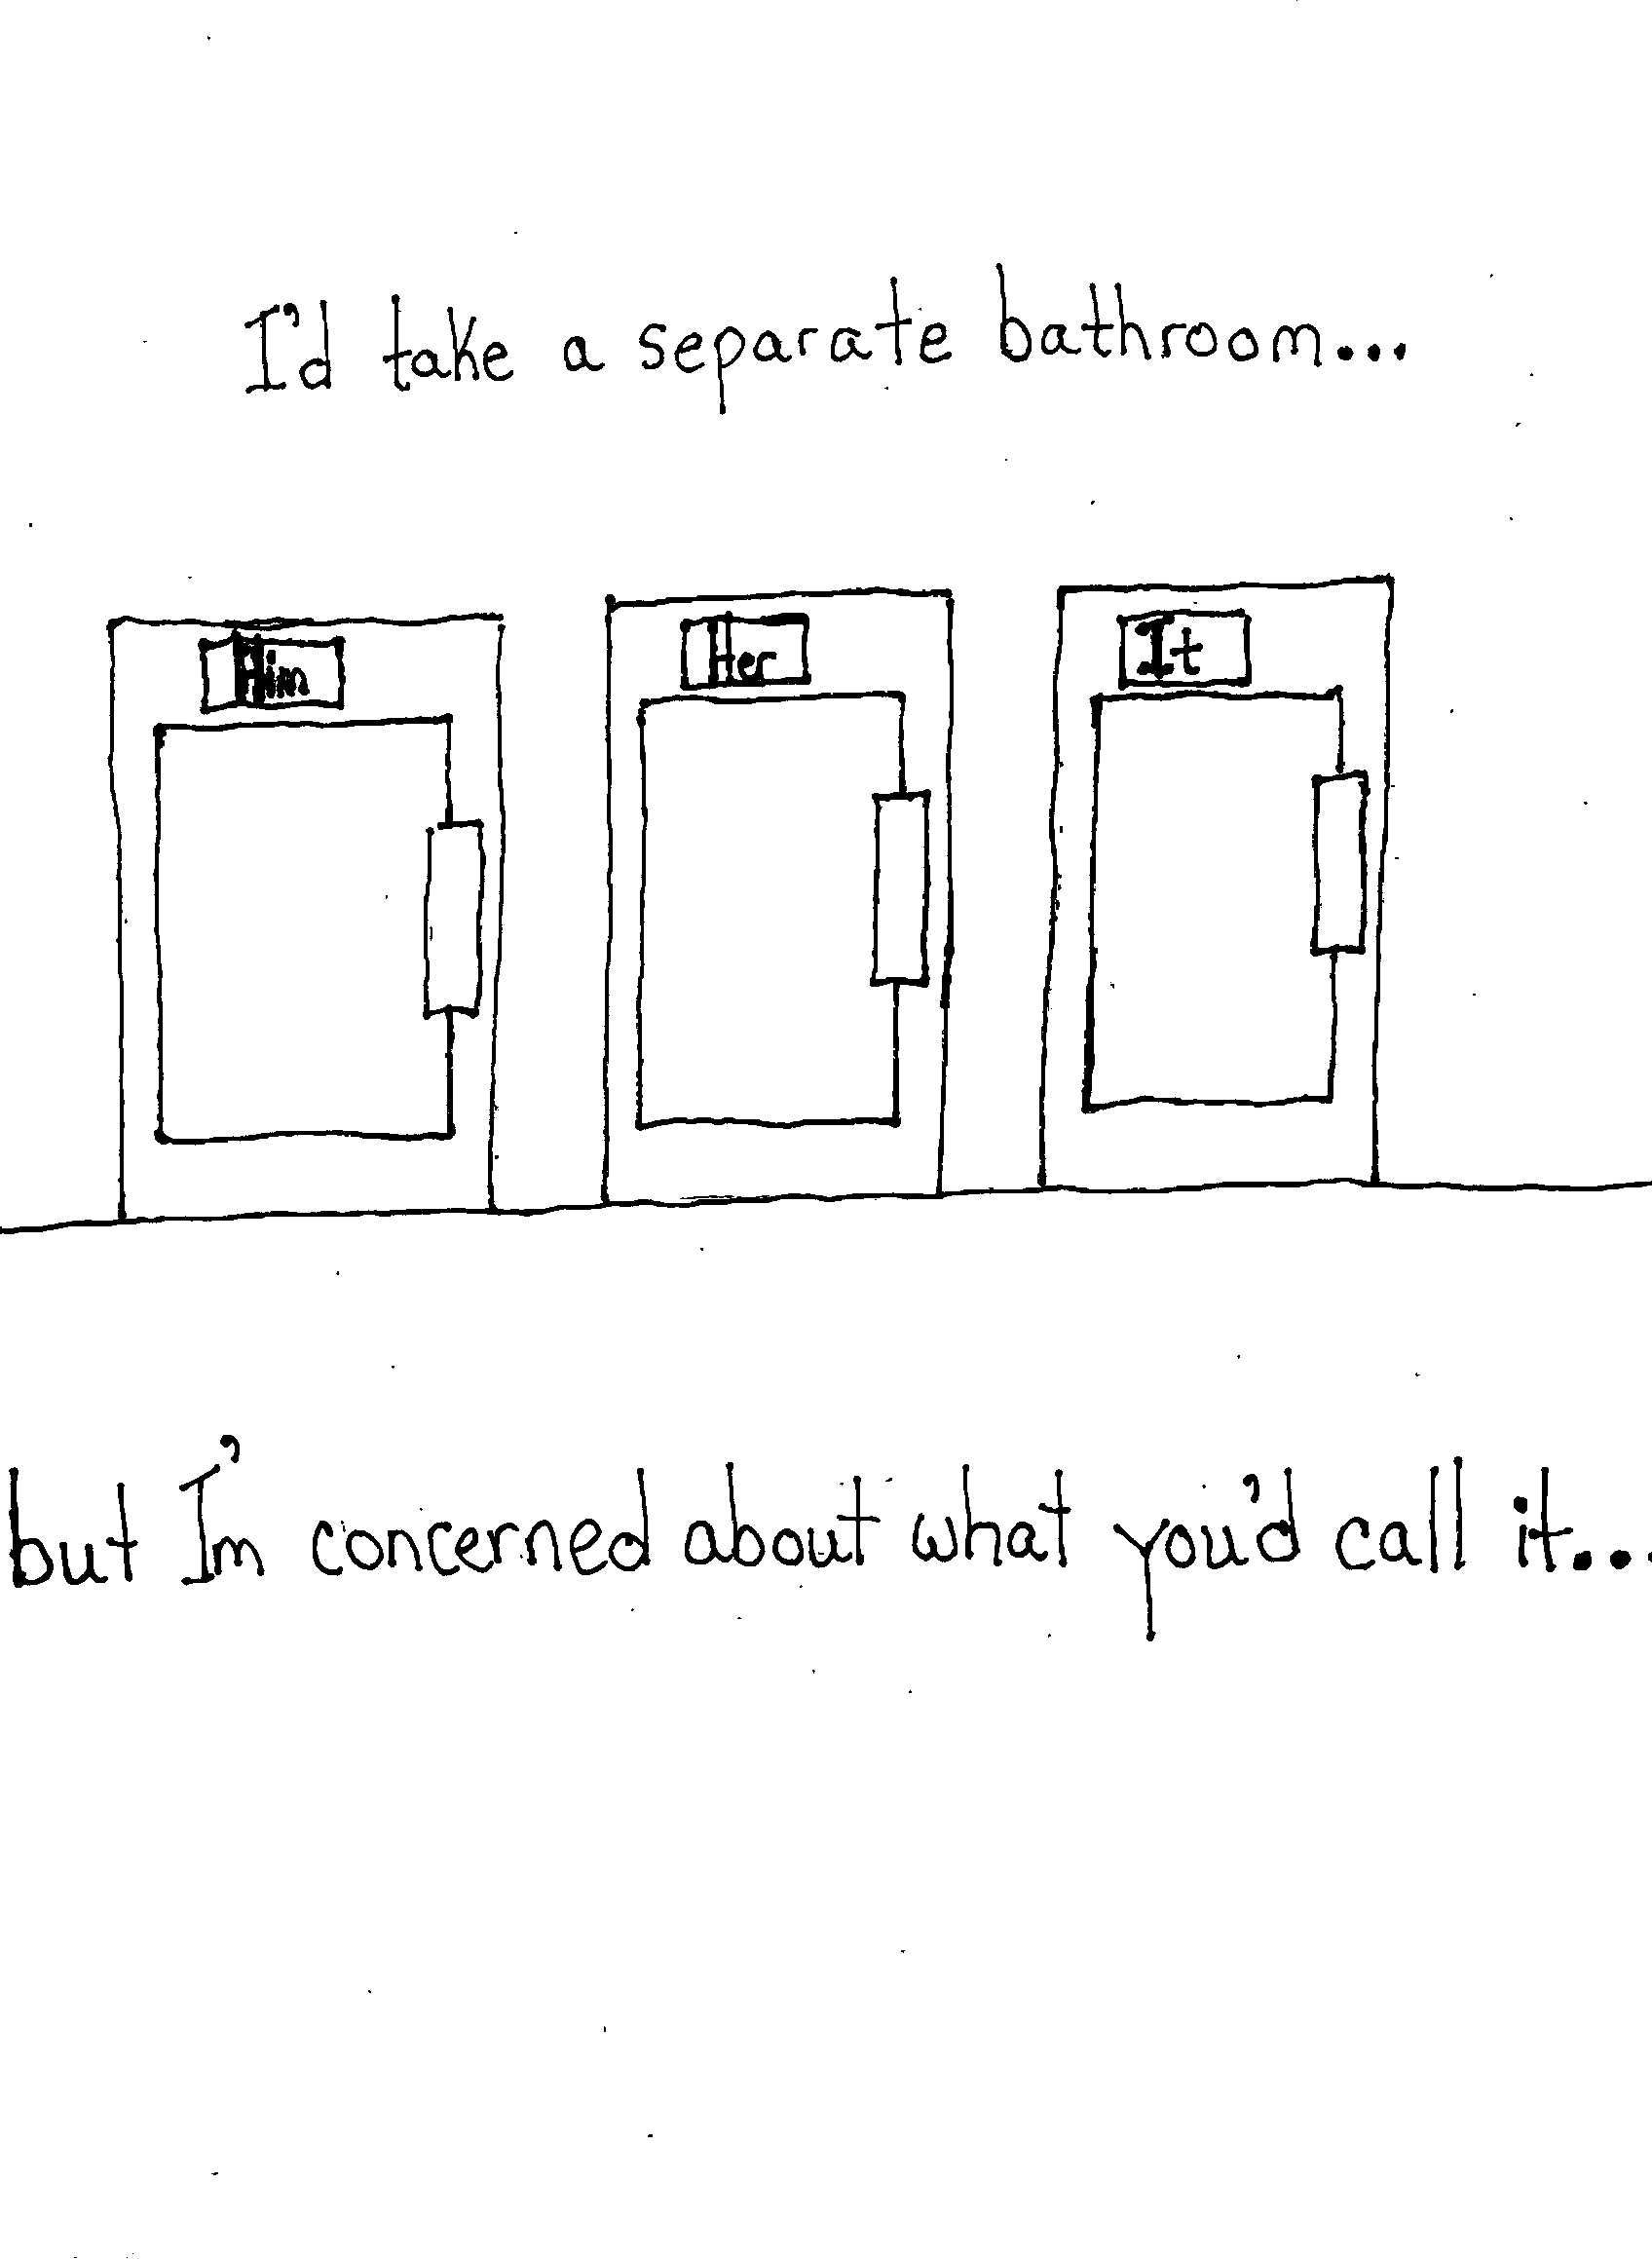 I'd take a separate bathroom...
Him
Her
It
but I'm concerned about what you'd call it...